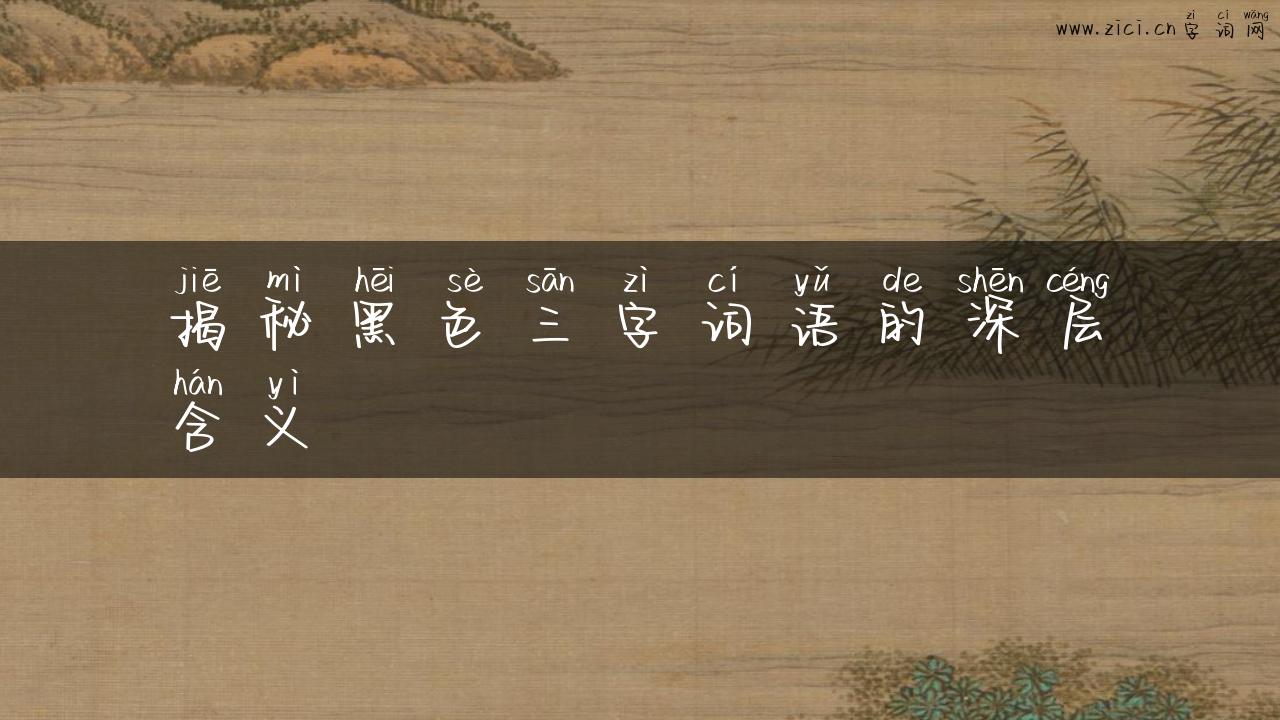 zì cí wǎng
www.zici.cn 字词网
jiē mì hēi sè sān zì cí yǔ de shēn céng
揭秘黑色三字词语的深层
hán yì
含义